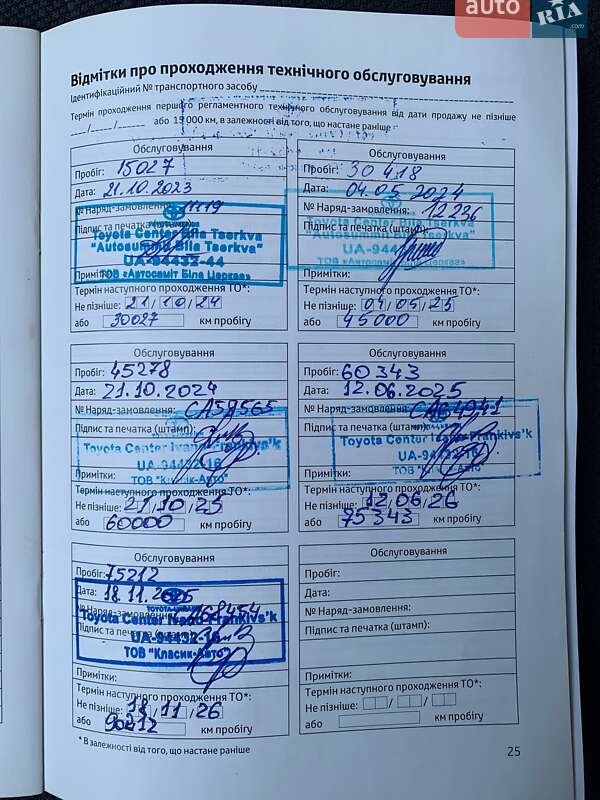 auto RIA.com
Відмітки про проходження технічного обслуговування
Ідентифікаційний № транспортного засобу
Термін проходження першого регламентного технічного обслуговування від дати продажу не пізніше
__/__/____ або 15 000 км, в залежності від того, що настане раніше
Обслуговування
Пробіг: 15027
Дата: 21.10.2023
№ Наряд-замовлення: 11119
Підпис та печатка (штамп):
Toyota Center Bila Tserkva
"Autosummit Bila Tserkva"
UA-94432-44
ТОВ «Автосаміт Біла Церква»
Примітки:
Термін наступного проходження ТО*:
Не пізніше: 21/10/24
або 30027 км пробігу
Обслуговування
Пробіг: 30418
Дата: 04.05.2024
№ Наряд-замовлення: 12236
Підпис та печатка (штамп):
Toyota Center Bila Tserkva
"Autosummit Bila Tserkva"
UA-944
ТОВ «Автосаміт Біла Церква»
Примітки:
Термін наступного проходження ТО*:
Не пізніше: 04/05/25
або 45000 км пробігу
Обслуговування
Пробіг: 45278
Дата: 21.10.2024
№ Наряд-замовлення:
Підпис та печатка (штамп):
Toyota Center Ivano Frankivs'k
UA-94432-16
ТОВ "Класик-Авто"
Примітки:
Термін наступного проходження ТО*:
Не пізніше: 21/10/25
або 60000 км пробігу
Обслуговування
Пробіг: 60343
Дата: 12.06.2025
№ Наряд-замовлення:
Підпис та печатка (штамп):
Toyota Center Ivano Frankivs'k
UA-94432-16
ТОВ "Класик-Авто"
Примітки:
Термін наступного проходження ТО*:
Не пізніше: 12/06/26
або 75343 км пробігу
Обслуговування
Пробіг: 75212
Дата: 18.11.2025
№ Наряд-замовлення:
Toyota Center Ivano Frankivs'k
Підпис та печатка (штамп):
UA-94432-16
ТОВ "Класик-Авто"
Примітки:
Термін наступного проходження ТО*:
Не пізніше: 18/11/26
або 90212 км пробігу
Обслуговування
Пробіг:
Дата:
№ Наряд-замовлення:
Підпис та печатка (штамп):
Примітки:
Термін наступного проходження ТО*:
Не пізніше:
або км пробігу
* В залежності від того, що настане раніше
25